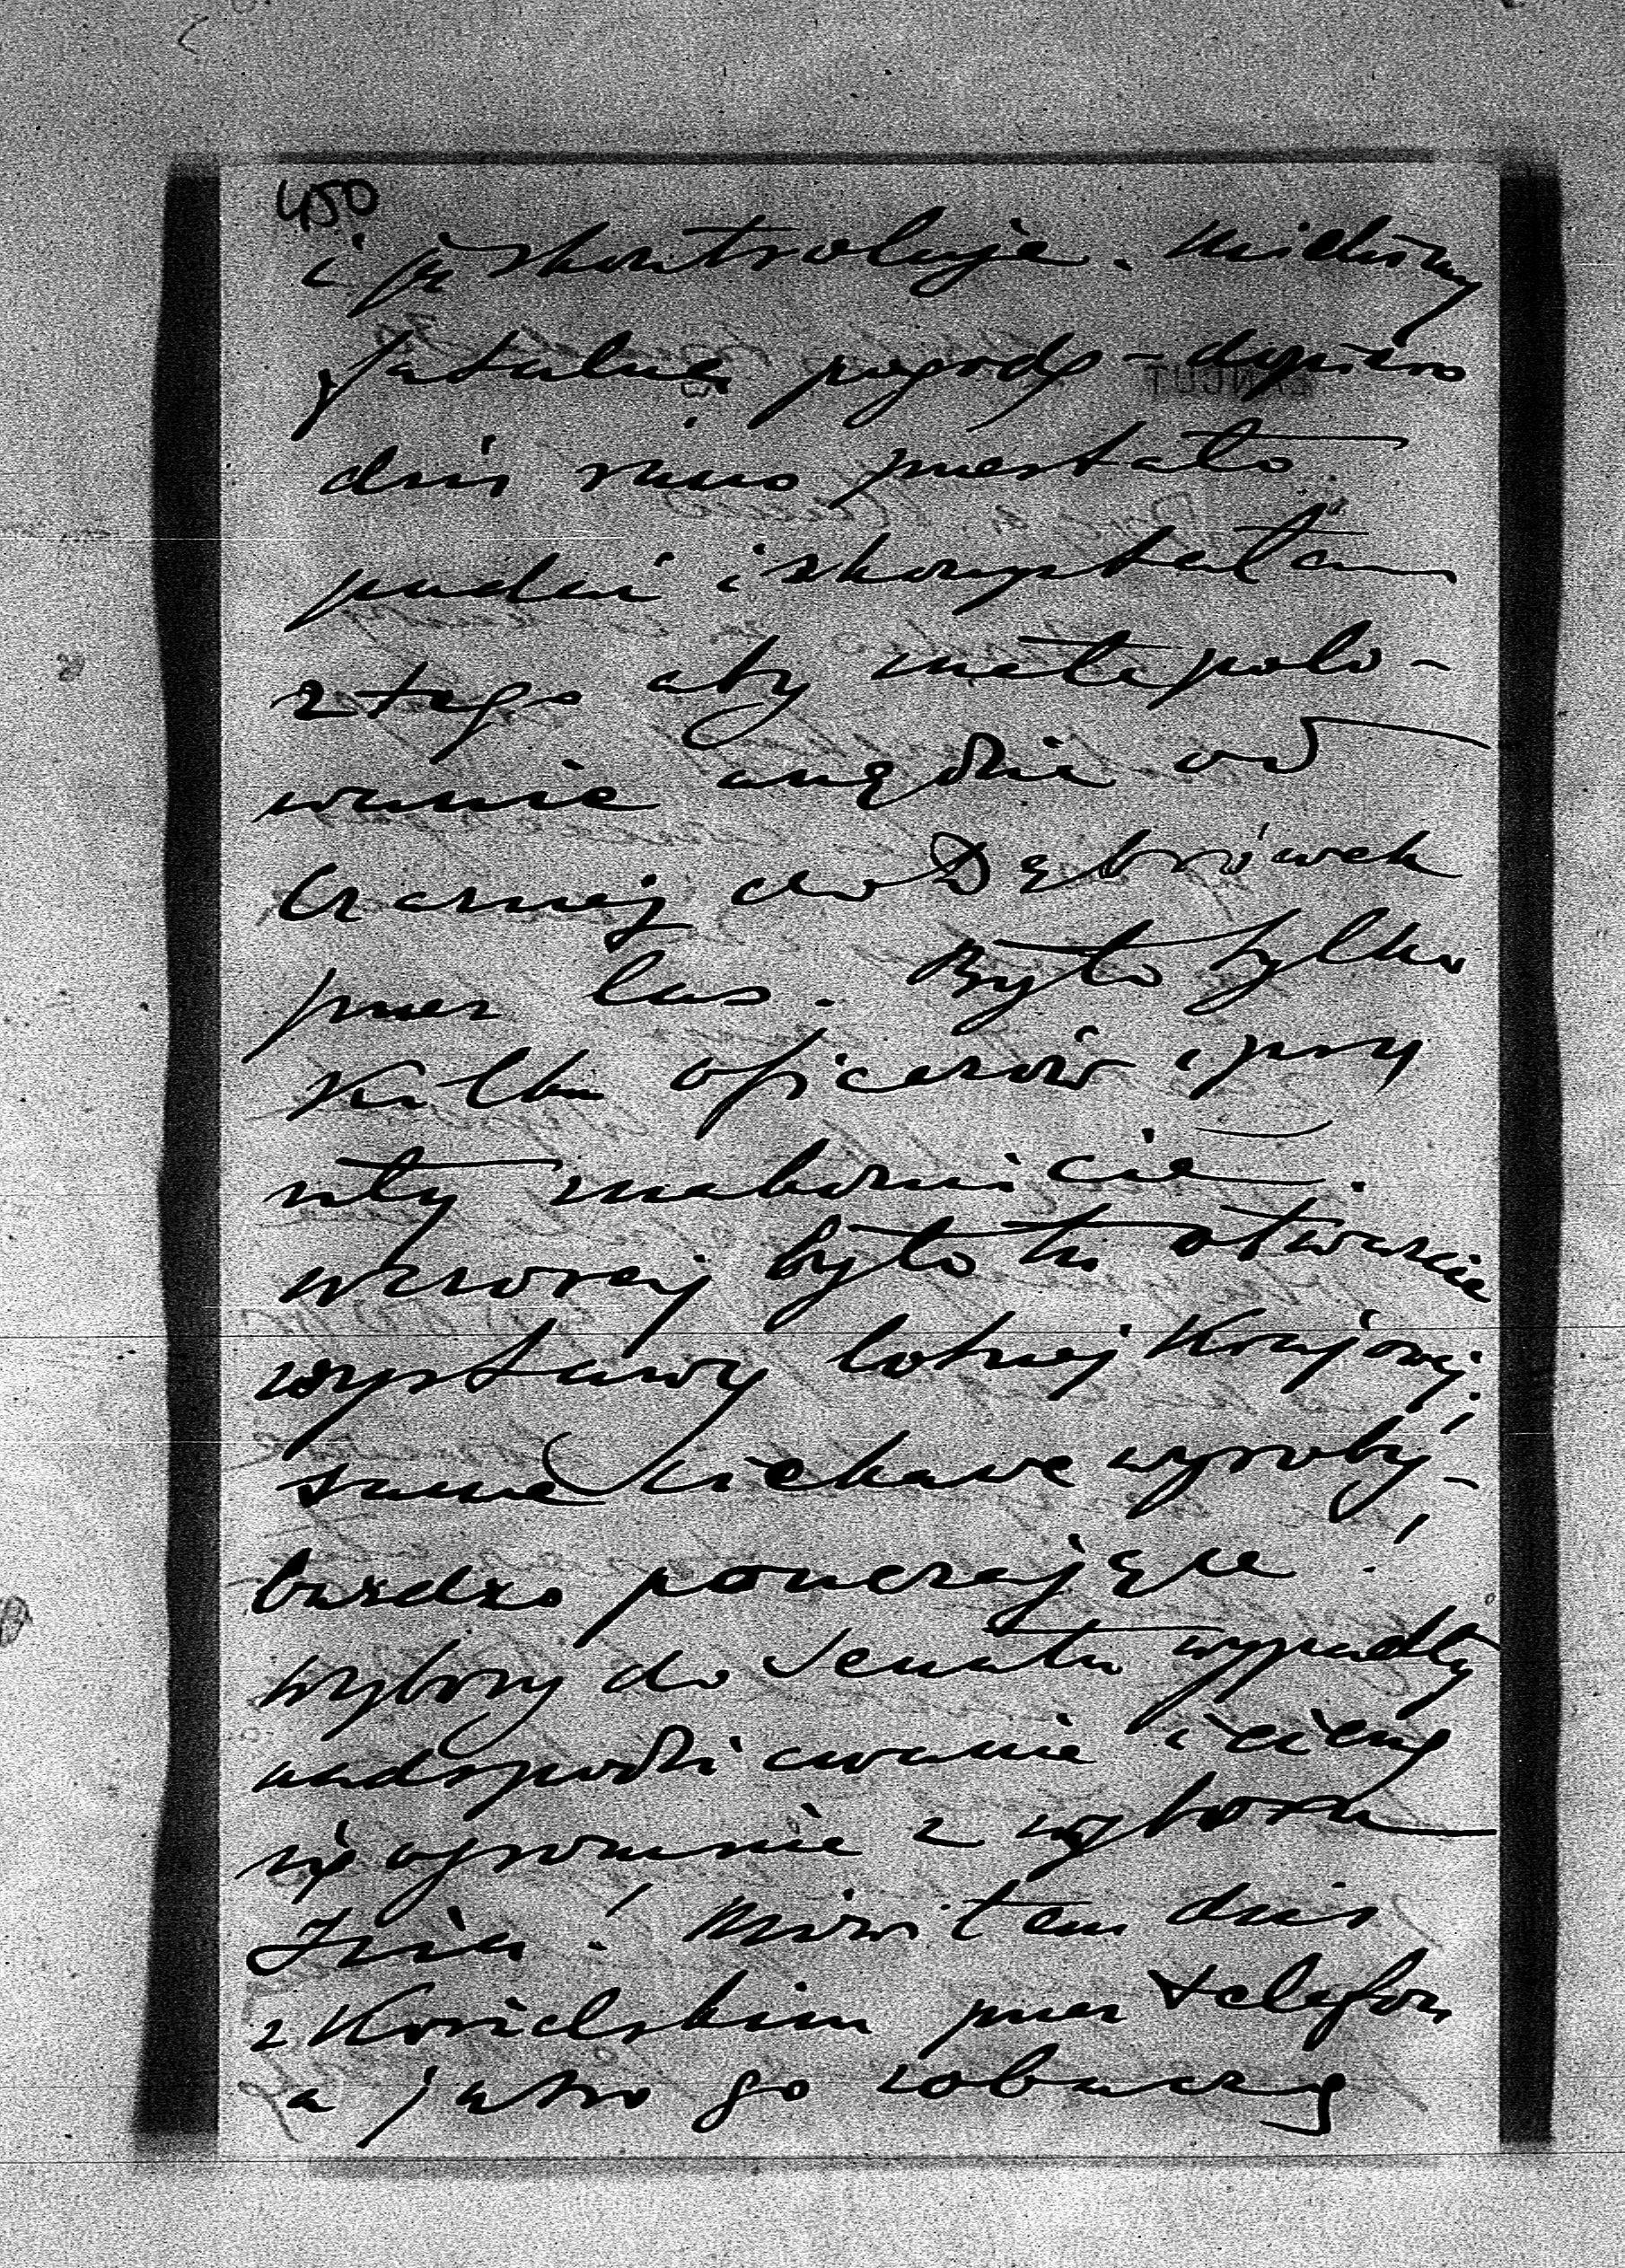 450
i ją skontroluje. Mieliśmy
fatalną pogodę - dopiero
dziś rano przestało
padać i skorzystałam
z tego aby małe polo-
wanie urządzić od
Czarnej do Dąbrówek
przez las. Było tylko
kilku oficerów i przy
znakomicie.
Wczoraj było tu otwarcie
wystawy lotnej Krajowej.
same ciekawe wyroby, -
bardzo pouczające!
Wybory do Senatu wypadły
nadspodziewanie i cieszę
się ogromnie z wyboru
Józia! Mówiłem dziś
z Kosielskim przez telefon
a jutro go zobaczę